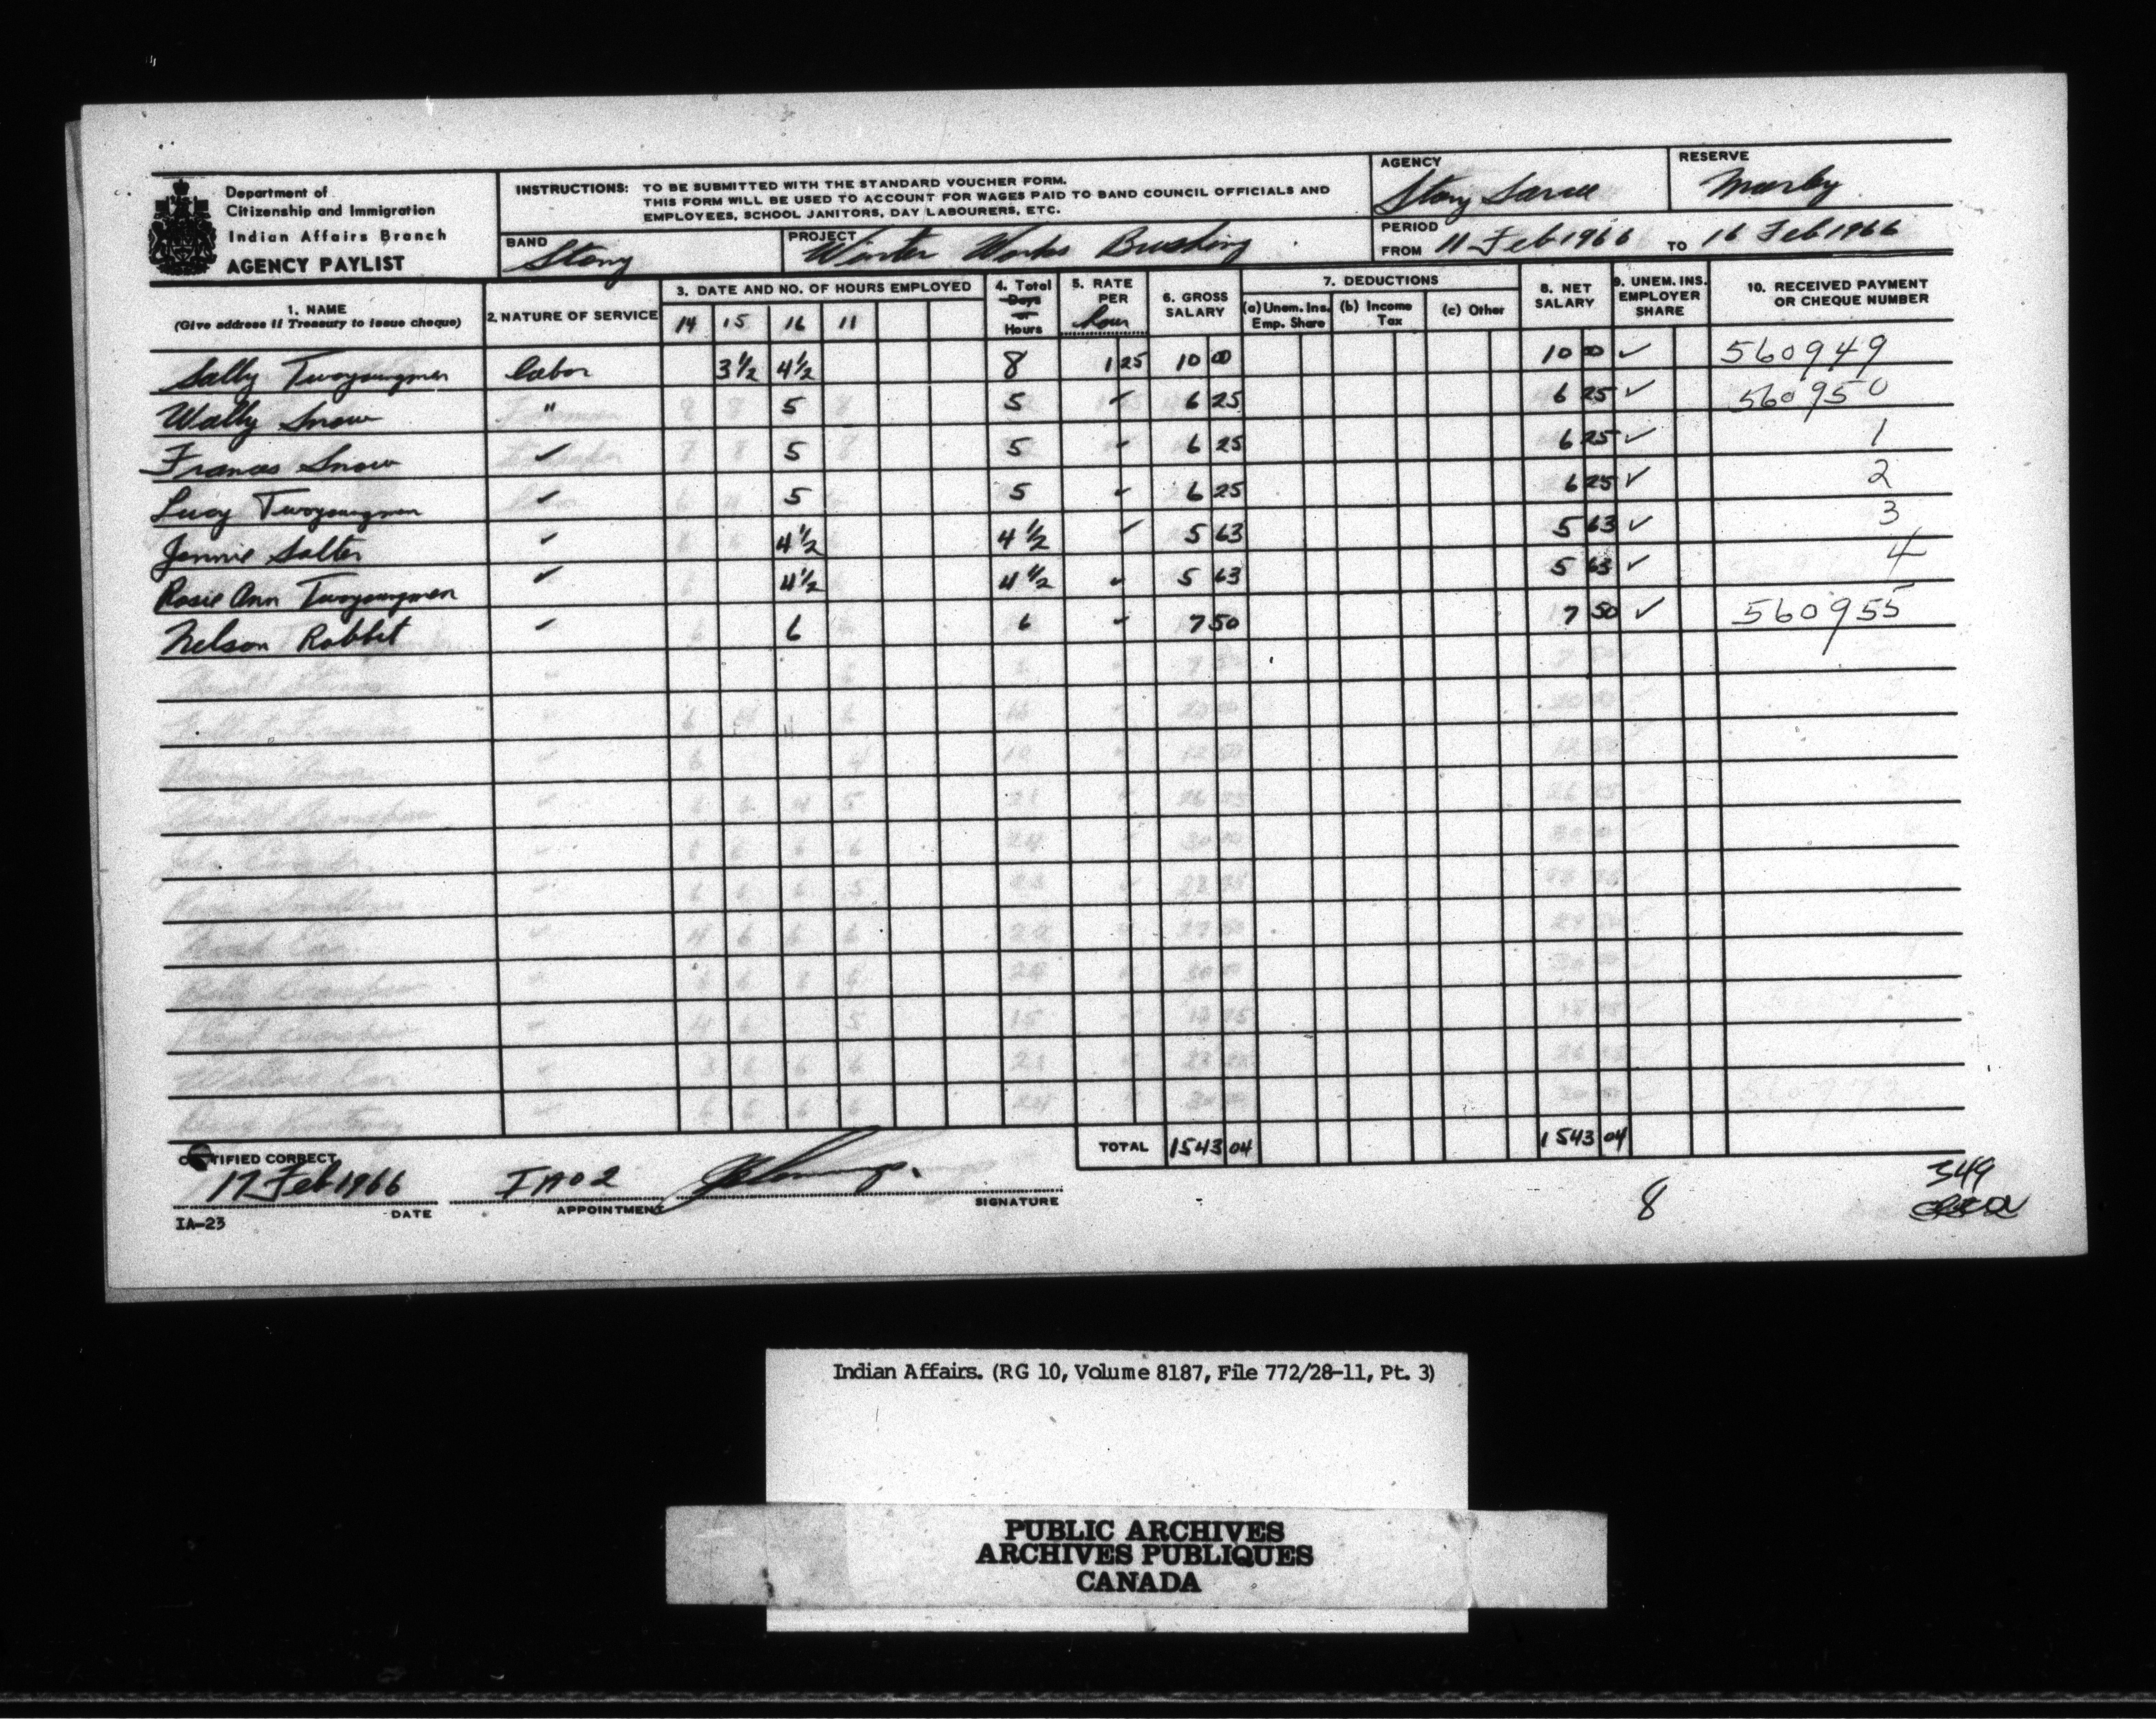 Department of
Citizenship and Immigration
Indian Affairs Branch
AGENCY PAYLIST
INSTRUCTIONS: TO BE SUBMITTED WITH THE STANDARD VOUCHER FORM.
THIS FORM WILL BE USED TO ACCOUNT FOR WAGES PAID TO BAND COUNCIL OFFICIALS AND
EMPLOYEES, SCHOOL JANITORS, DAY LABOURERS, ETC.
AGENCY Stony Sarcee
RESERVE Morley
BAND Stony
PROJECT Winter Works Brushing
PERIOD FROM 11 Feb 1966 TO 16 Feb 1966
1. NAME
(Give address if Treasury to issue cheque)
2. NATURE OF SERVICE
3. DATE AND NO. OF HOURS EMPLOYED
14 15 16 11
4. Total Days or Hours
5. RATE PER hour
6. GROSS SALARY
7. DEDUCTIONS
(a) Unem. Ins. Emp. Share
(b) Income Tax
(c) Other
8. NET SALARY
9. UNEM. INS. EMPLOYER SHARE
10. RECEIVED PAYMENT OR CHEQUE NUMBER
Sally Twoyoungmen labor 3½ 4½ 8 1 25 10 00 10 00 ✓ 560949
Wally Snow " 5 5 ✓ 6 25 6 25 ✓ 560950
Frances Snow ✓ 5 5 ✓ 6 25 6 25 ✓ 1
Lucy Twoyoungmen ✓ 5 5 ✓ 6 25 6 25 ✓ 2
Jennie Salter ✓ 4½ 4½ ✓ 5 63 5 63 ✓ 3
Rosie Ann Twoyoungmen ✓ 4½ 4½ ✓ 5 63 5 63 ✓ 4
Nelson Rabbit ✓ 6 6 ✓ 7 50 7 50 ✓ 560955
TOTAL 1543 04 1543 04
CERTIFIED CORRECT
17 Feb 1966
DATE
APPOINTMENT
SIGNATURE
IA-23
8
349
Indian Affairs. (RG 10, Volume 8187, File 772/28-11, Pt. 3)
PUBLIC ARCHIVES
ARCHIVES PUBLIQUES
CANADA